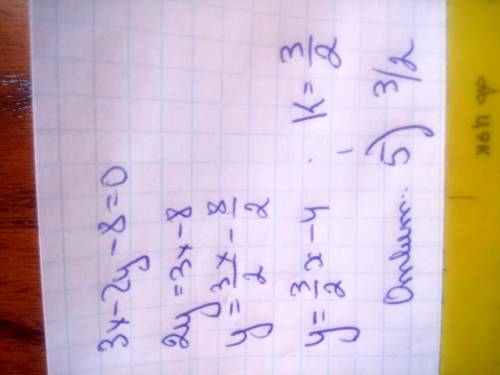 3x-2y-8=0
2y=3x-8
y=3x/2-8/2
y=3/2x-4; K=3/2
Ответ: 5) 3/2